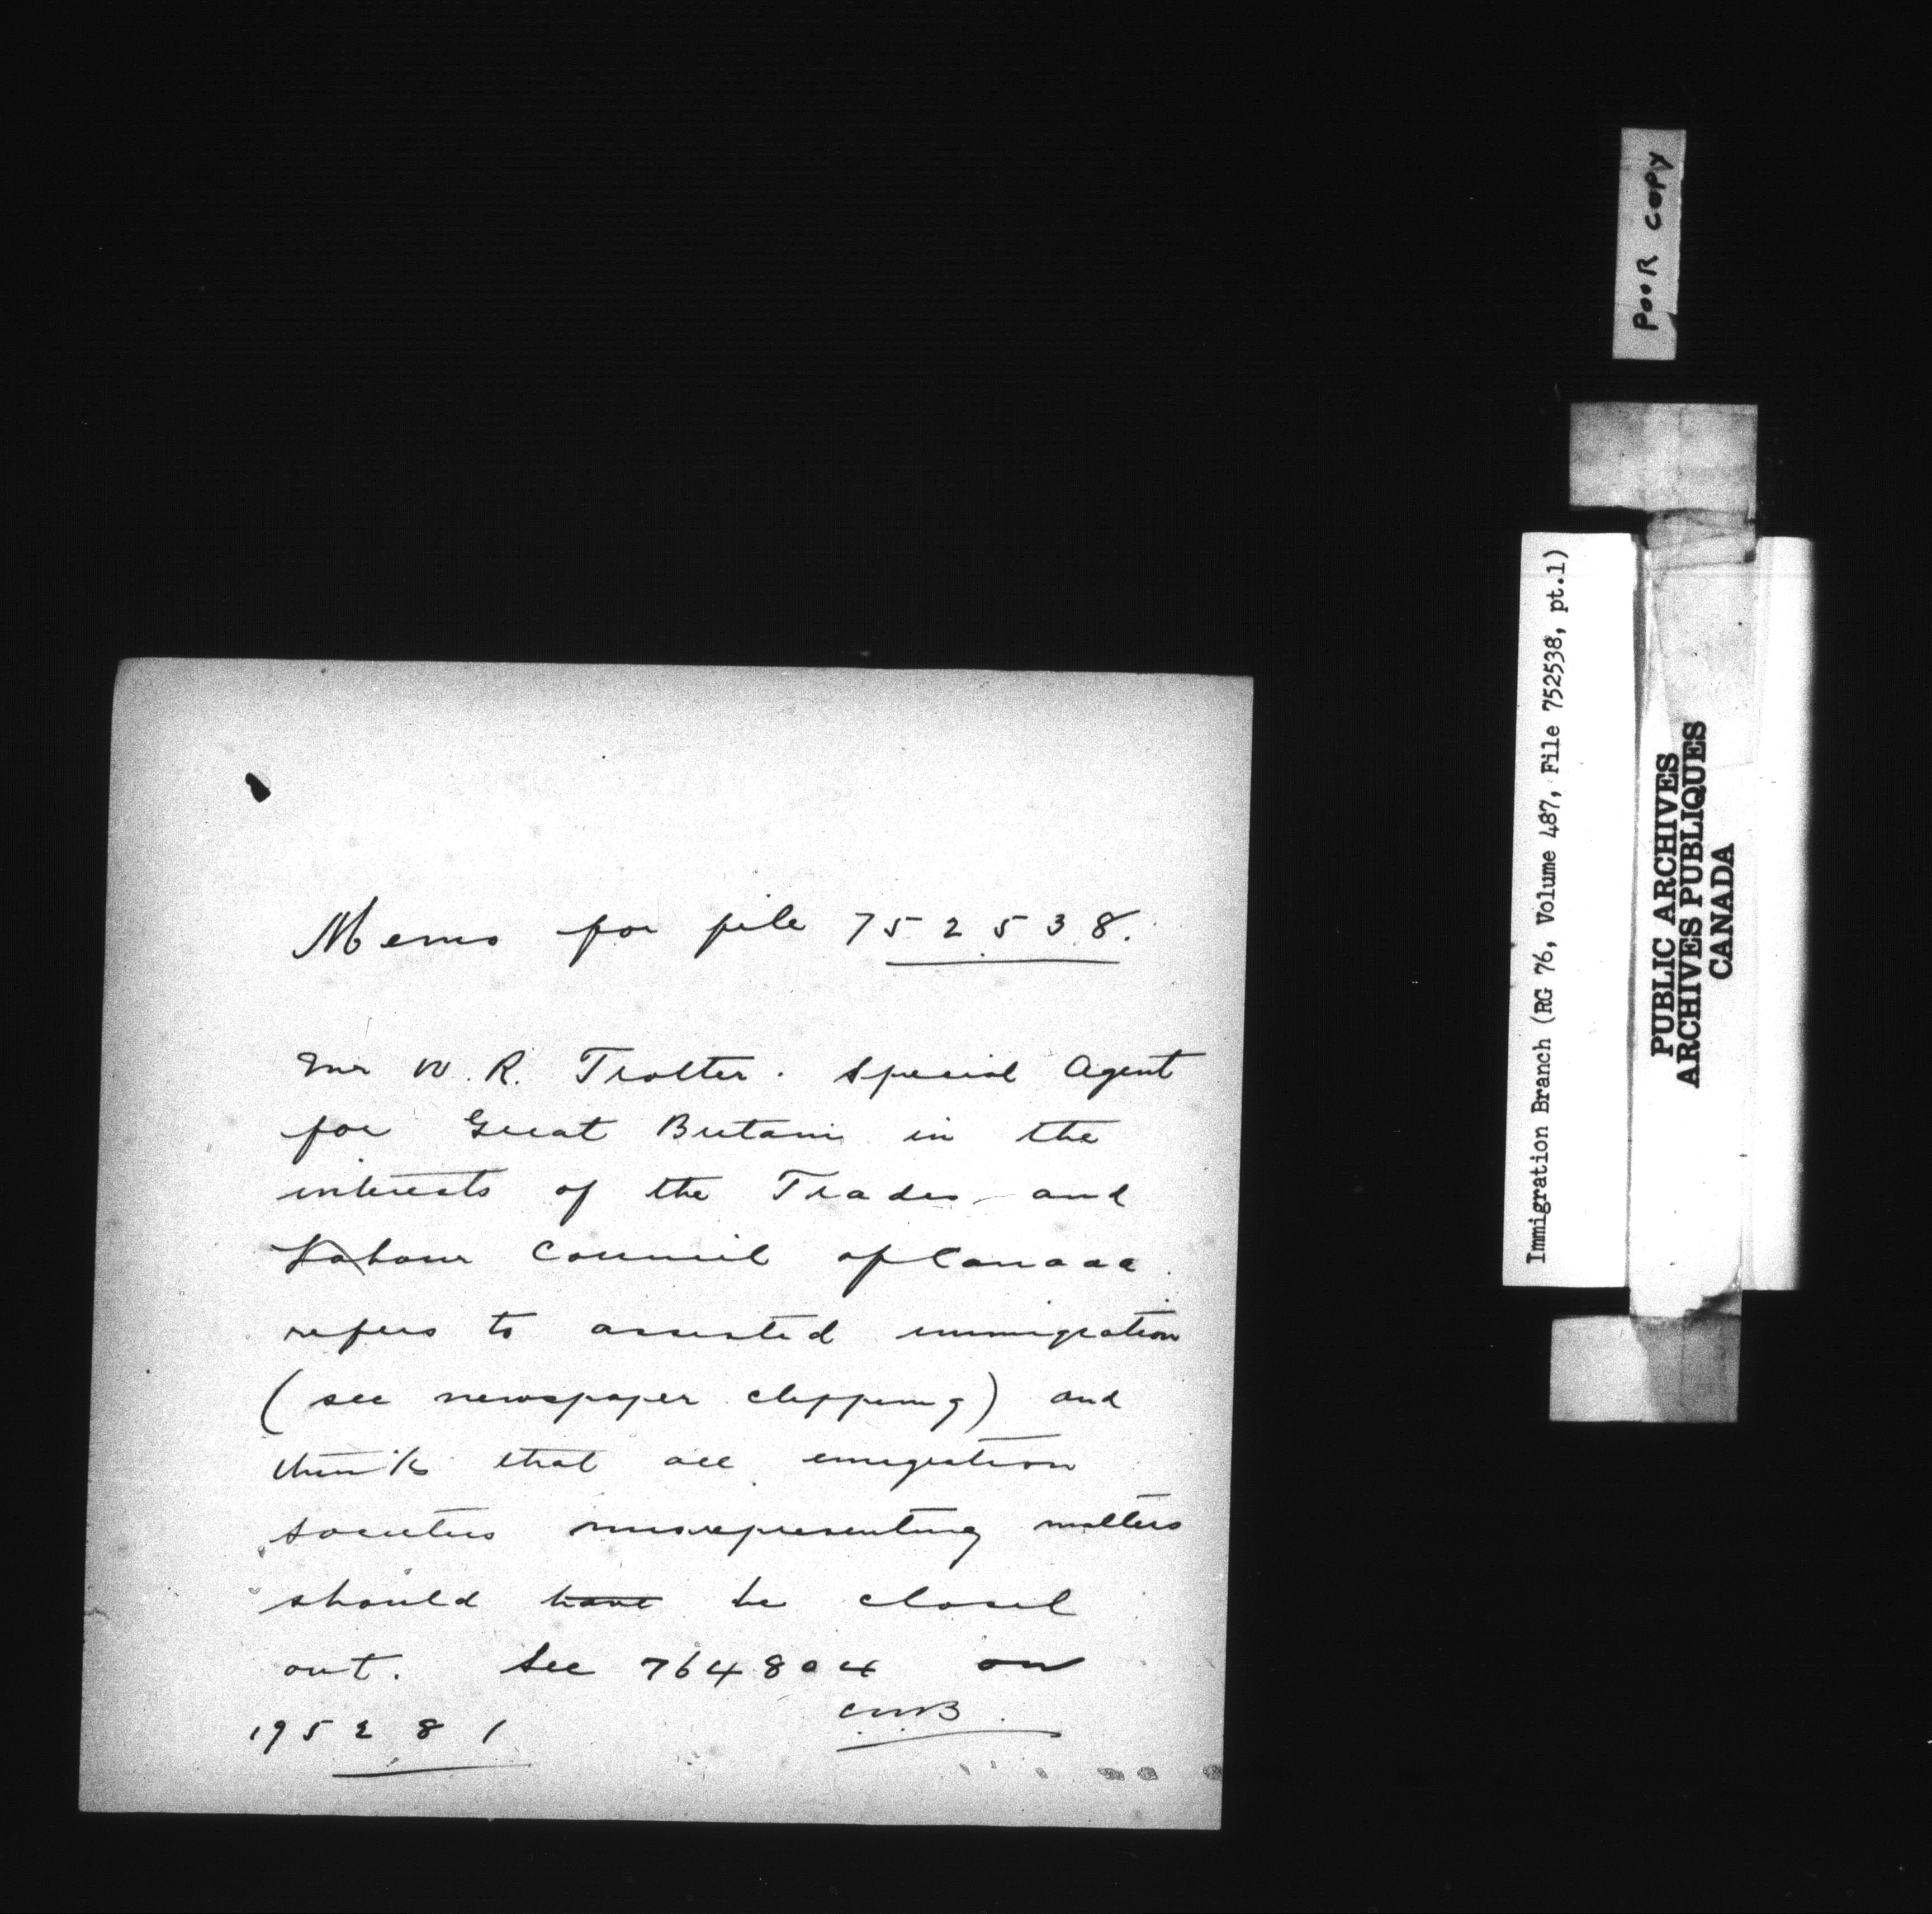 Memo for file 752538.
Mr W. R. Trotter. Special Agent
for Great Britain in the
interests of the Trades and
Labour Council of Canada
refers to assisted immigration
(see newspaper clipping) and
thinks that all emigration
societies misrepresenting matters
should have be closed
out. See 764804 on
195281
CMB
POOR COPY
Immigration Branch (RG 76, Volume 487, File 752538, pt.1)
PUBLIC ARCHIVES
ARCHIVES PUBLIQUES
CANADA